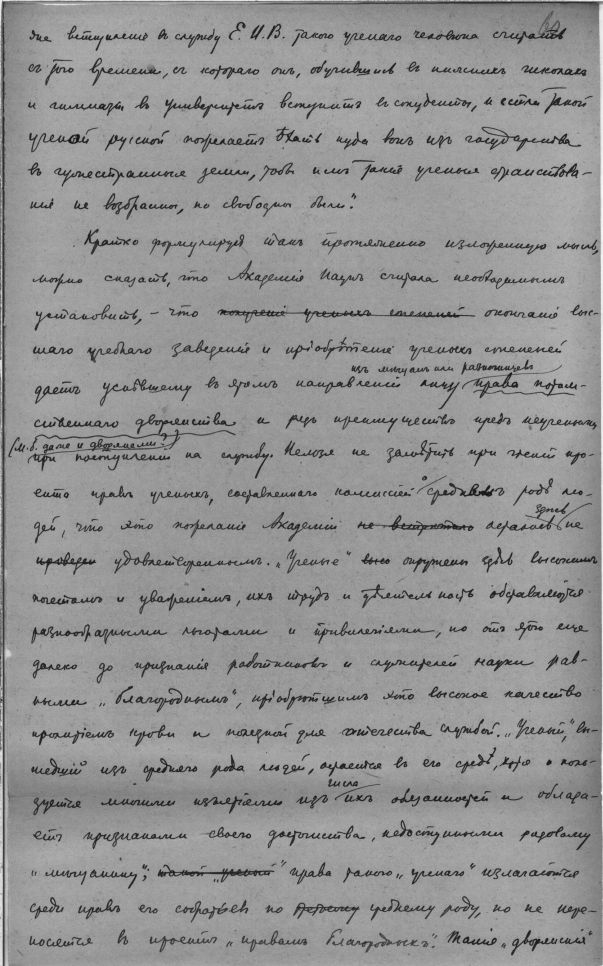 же вступленiе въ службу Е. И. В. такого ученаго человѣка считать
съ того времени, съ котораго онъ, обучившись въ нижнихъ школахъ
и гимназiи въ Университетъ вступитъ въ студенты, и естли такой
ученой русской пожелаетъ ѣхать куда вонъ изъ государства
въ чужестранные земли, чтобы имъ такiе ученыя странствова-
нiя не возбранны, но свободны были".
Кратко формулируя такъ протяженно изложенную мысль,
можно сказать, что Академiя Наукъ считала необходимымъ
установить, – что полученiе ученыхъ степеней окончанiе выс-
шаго учебнаго заведенiя и прiобрѣтенiе ученыхъ степеней
изъ мѣщанъ или разночинцевъ
даетъ успѣвшему въ этомъ направленiи лицу права потом-
ственнаго дворянства и рядъ преимуществъ предъ неучеными
(м. б. даже и дворянами?)
при поступленiи на службу. Нельзя не замѣтить при чтенiи про-
екта правъ ученыхъ, составленнаго комиссiей о среднемъ родѣ лю-
здѣсь
дей, что это пожеланiе Академiи не встрѣтило осталось не
проведен удовлетвореннымъ. „Ученые" окружены здѣсь высокимъ
почетомъ и уваженiемъ, ихъ трудъ и дѣятельность обставляются
разнообразными льготами и привилегiями, но отъ этого еще
далеко до признанiя работниковъ и служителей науки рав-
ными „благороднымъ", прiобрѣтшимъ это высокое качество
пролитiемъ крови и полезной для отечества службой. „Ученый", вы-
шедшiй изъ средняго рода людей, остается въ его средѣ, хотя и поль-
числа
зуется многими изъятiями изъ ихъ обязанностей и облада-
етъ признаками своего достоинства, недоступными рядовому
„мѣщанину"; такой „ученый" права такого „ученаго" излагаются
среди правъ его собратьевъ по среднему роду, но не пере-
носятся въ проектъ „правамъ благородныхъ". Такiе „дворянскiя"